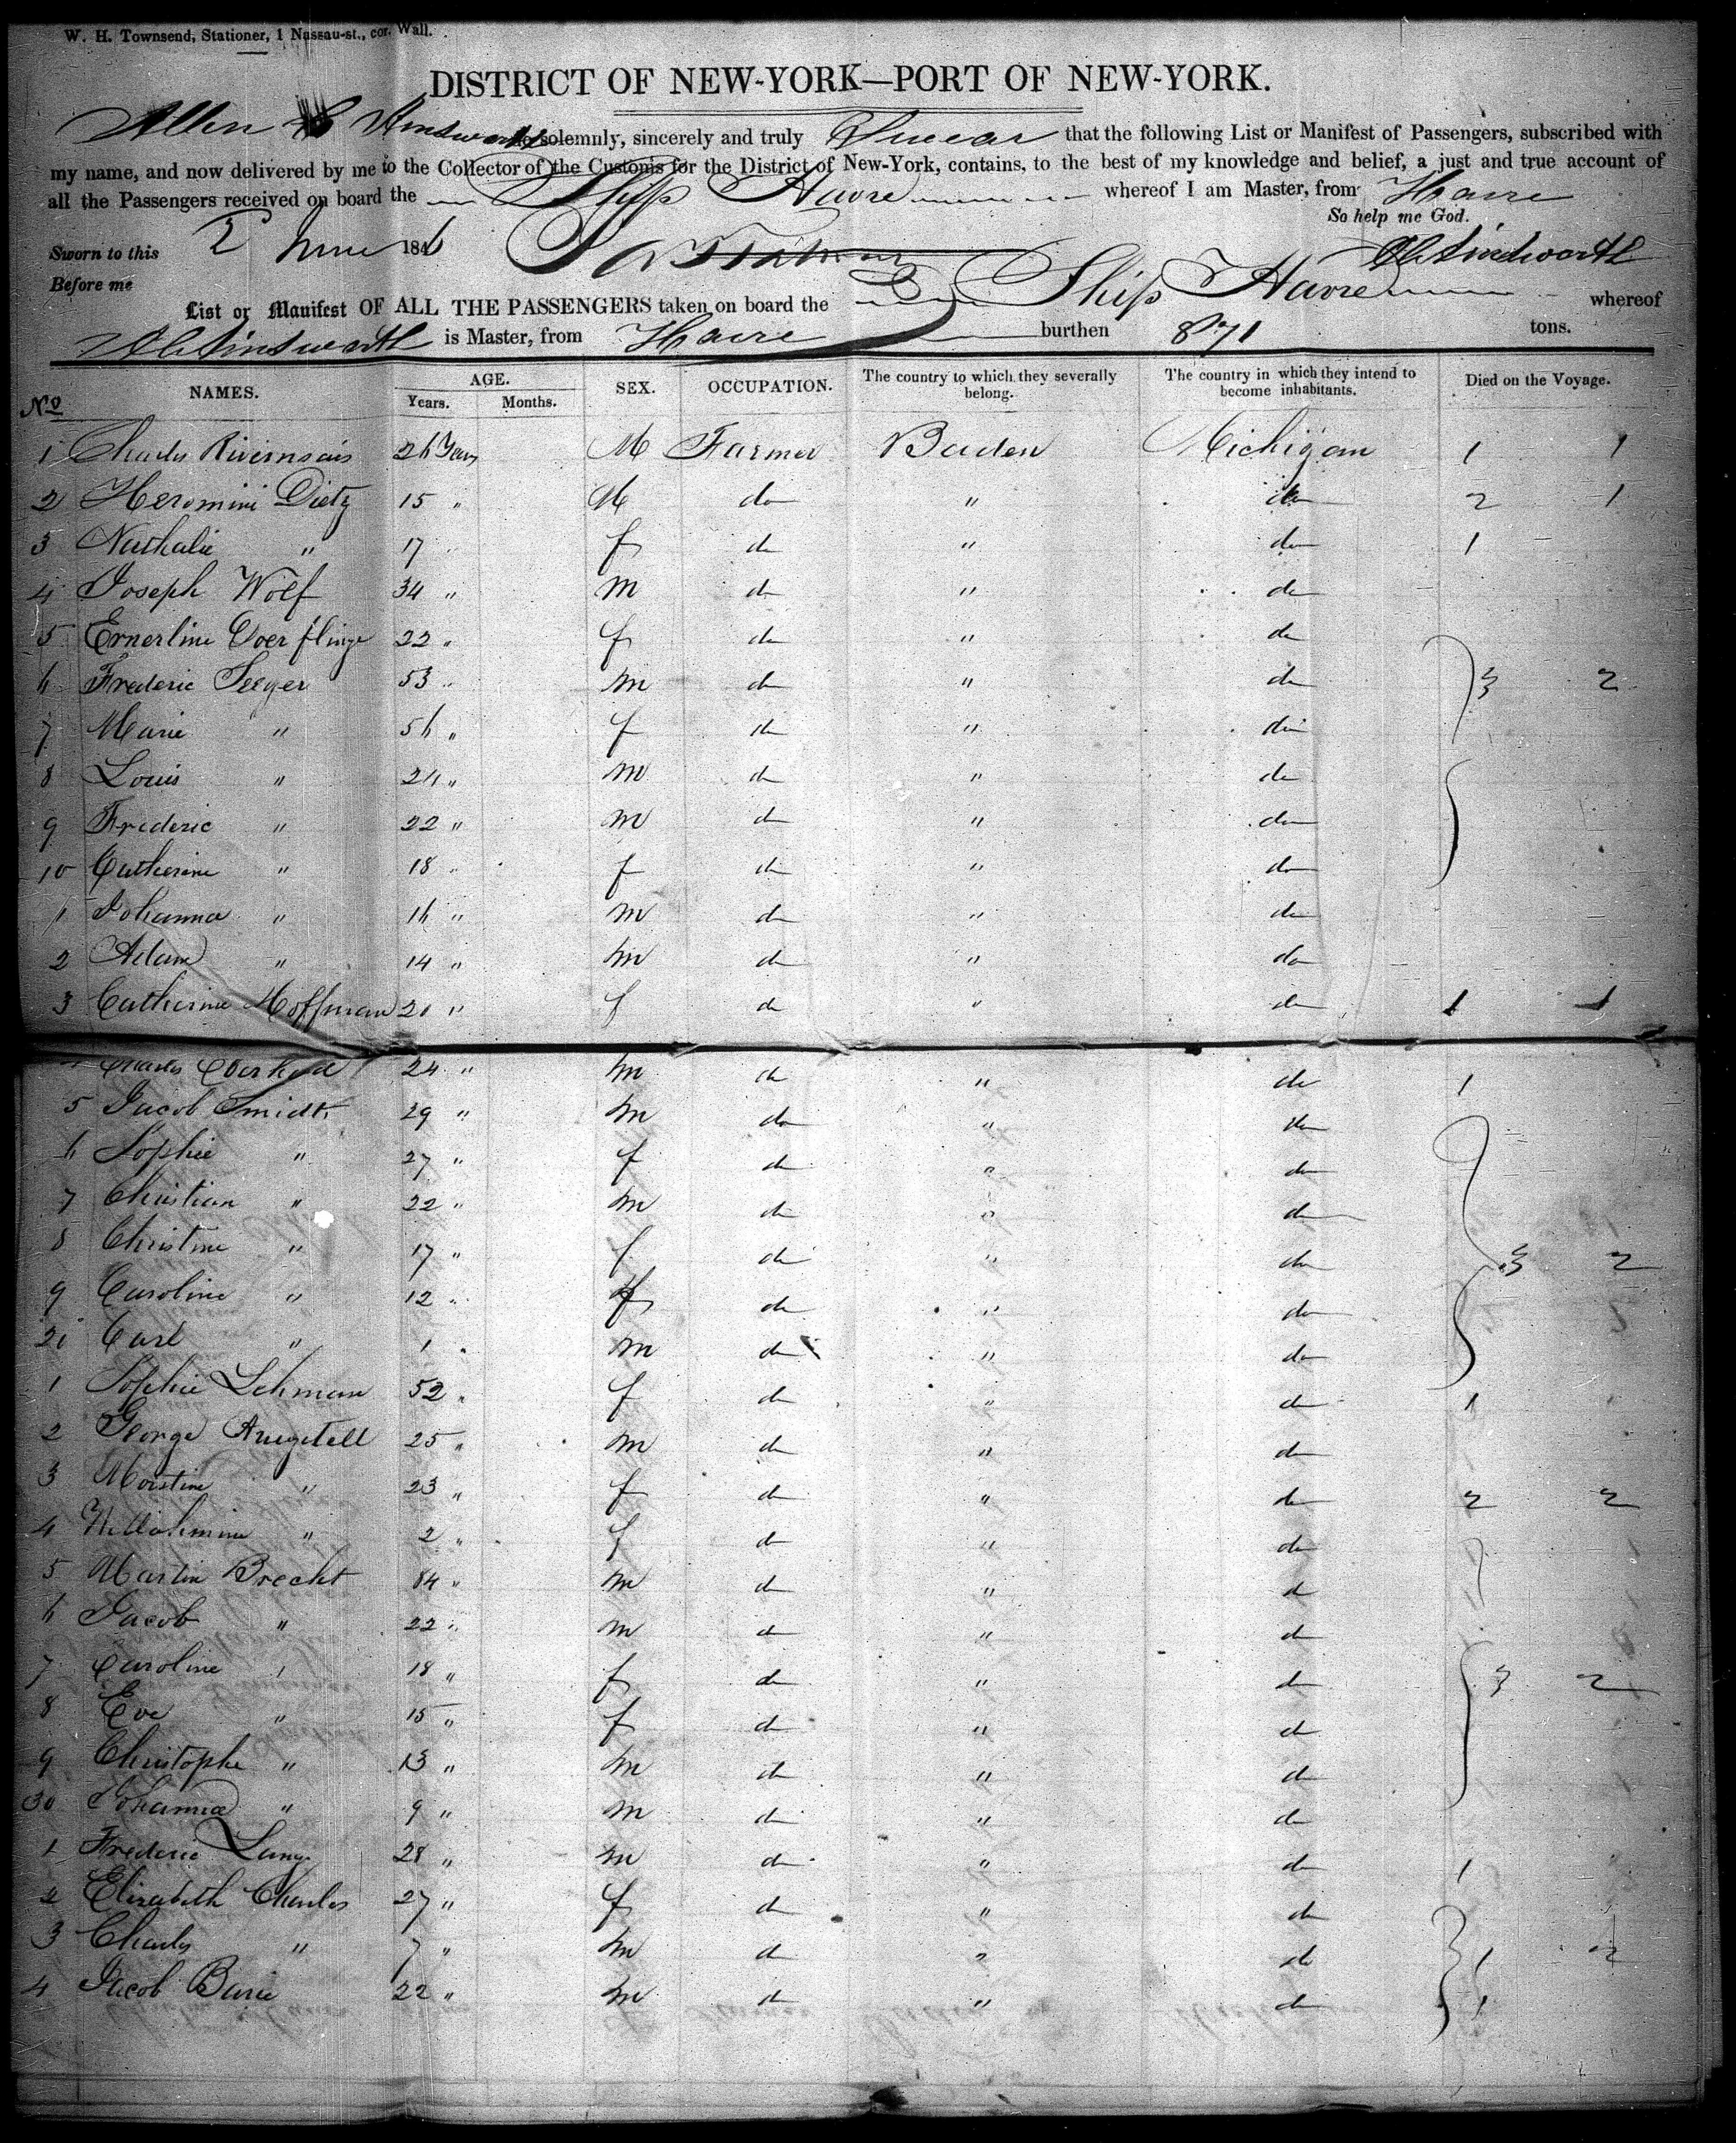 W. H. Townsend, Stationer, 1 Nassau-st., cor. Wall.
DISTRICT OF NEW-YORK—PORT OF NEW-YORK.
Allen solemnly, sincerely and truly Swear that the following List or Manifest of Passengers, subscribed with
my name, and now delivered by me to the Collector of the Customs for the District of New-York, contains, to the best of my knowledge and belief, a just and true account of
all the Passengers received on board the Ship Havre whereof I am Master, from Havre
So help me God.
Sworn to this 2 June 1846
Before me
List or Manifest OF ALL THE PASSENGERS taken on board the Ship Havre whereof
is Master, from Havre burthen 871 tons.
No NAMES. AGE. Years. Months. SEX. OCCUPATION. The country to which they severally belong. The country in which they intend to become inhabitants. Died on the Voyage.
1 Charles 26 Years M Farmer Baden Michigan 1 1
2 Dietz 15 " M do " do 2 1
3 Nathalie " 17 " f do " do 1
4 Joseph Wolf 34 " m do " do
5 22 " f do " do
6 Frederic Seeger 53 " m do " do 3 2
7 Marie " 56 " f do " do
8 Louis " 24 " m do " do
9 Frederic " 22 " m do " do
10 Catherine " 18 " f do " do
1 Johanna " 16 " m do " do
2 Adam " 14 " m do " do
3 Catherine Hoffman 20 " f do " do 1 1
Charles 24 " m do " do 1
5 Jacob Smidt 29 " m do " do
6 Sophie " 27 " f do " do
7 Christian " 22 " m do " do
8 Christine " 17 " f do " do 3 2
9 Caroline " 12 " f do " do
20 Carl " 1 " m do " do
1 Sophie Lehman 52 " f do " do 1
2 George 25 " m do " do
3 " 23 " f do " do 2 2
4 " 2 " f do " do
5 Martin Brecht 84 " m do " do
6 Jacob " 22 " m do " do
7 Caroline " 18 " f do " do 3 2
8 Eve " 15 " f do " do
9 Christophe " 13 " m do " do
30 Johanna " 9 " m do " do
1 Frederic Lang 28 " m do " do 1
2 Elizabeth Charles 27 " f do " do
3 Charles " 7 " m do " do 1 2
4 Jacob 22 " m do " do 1